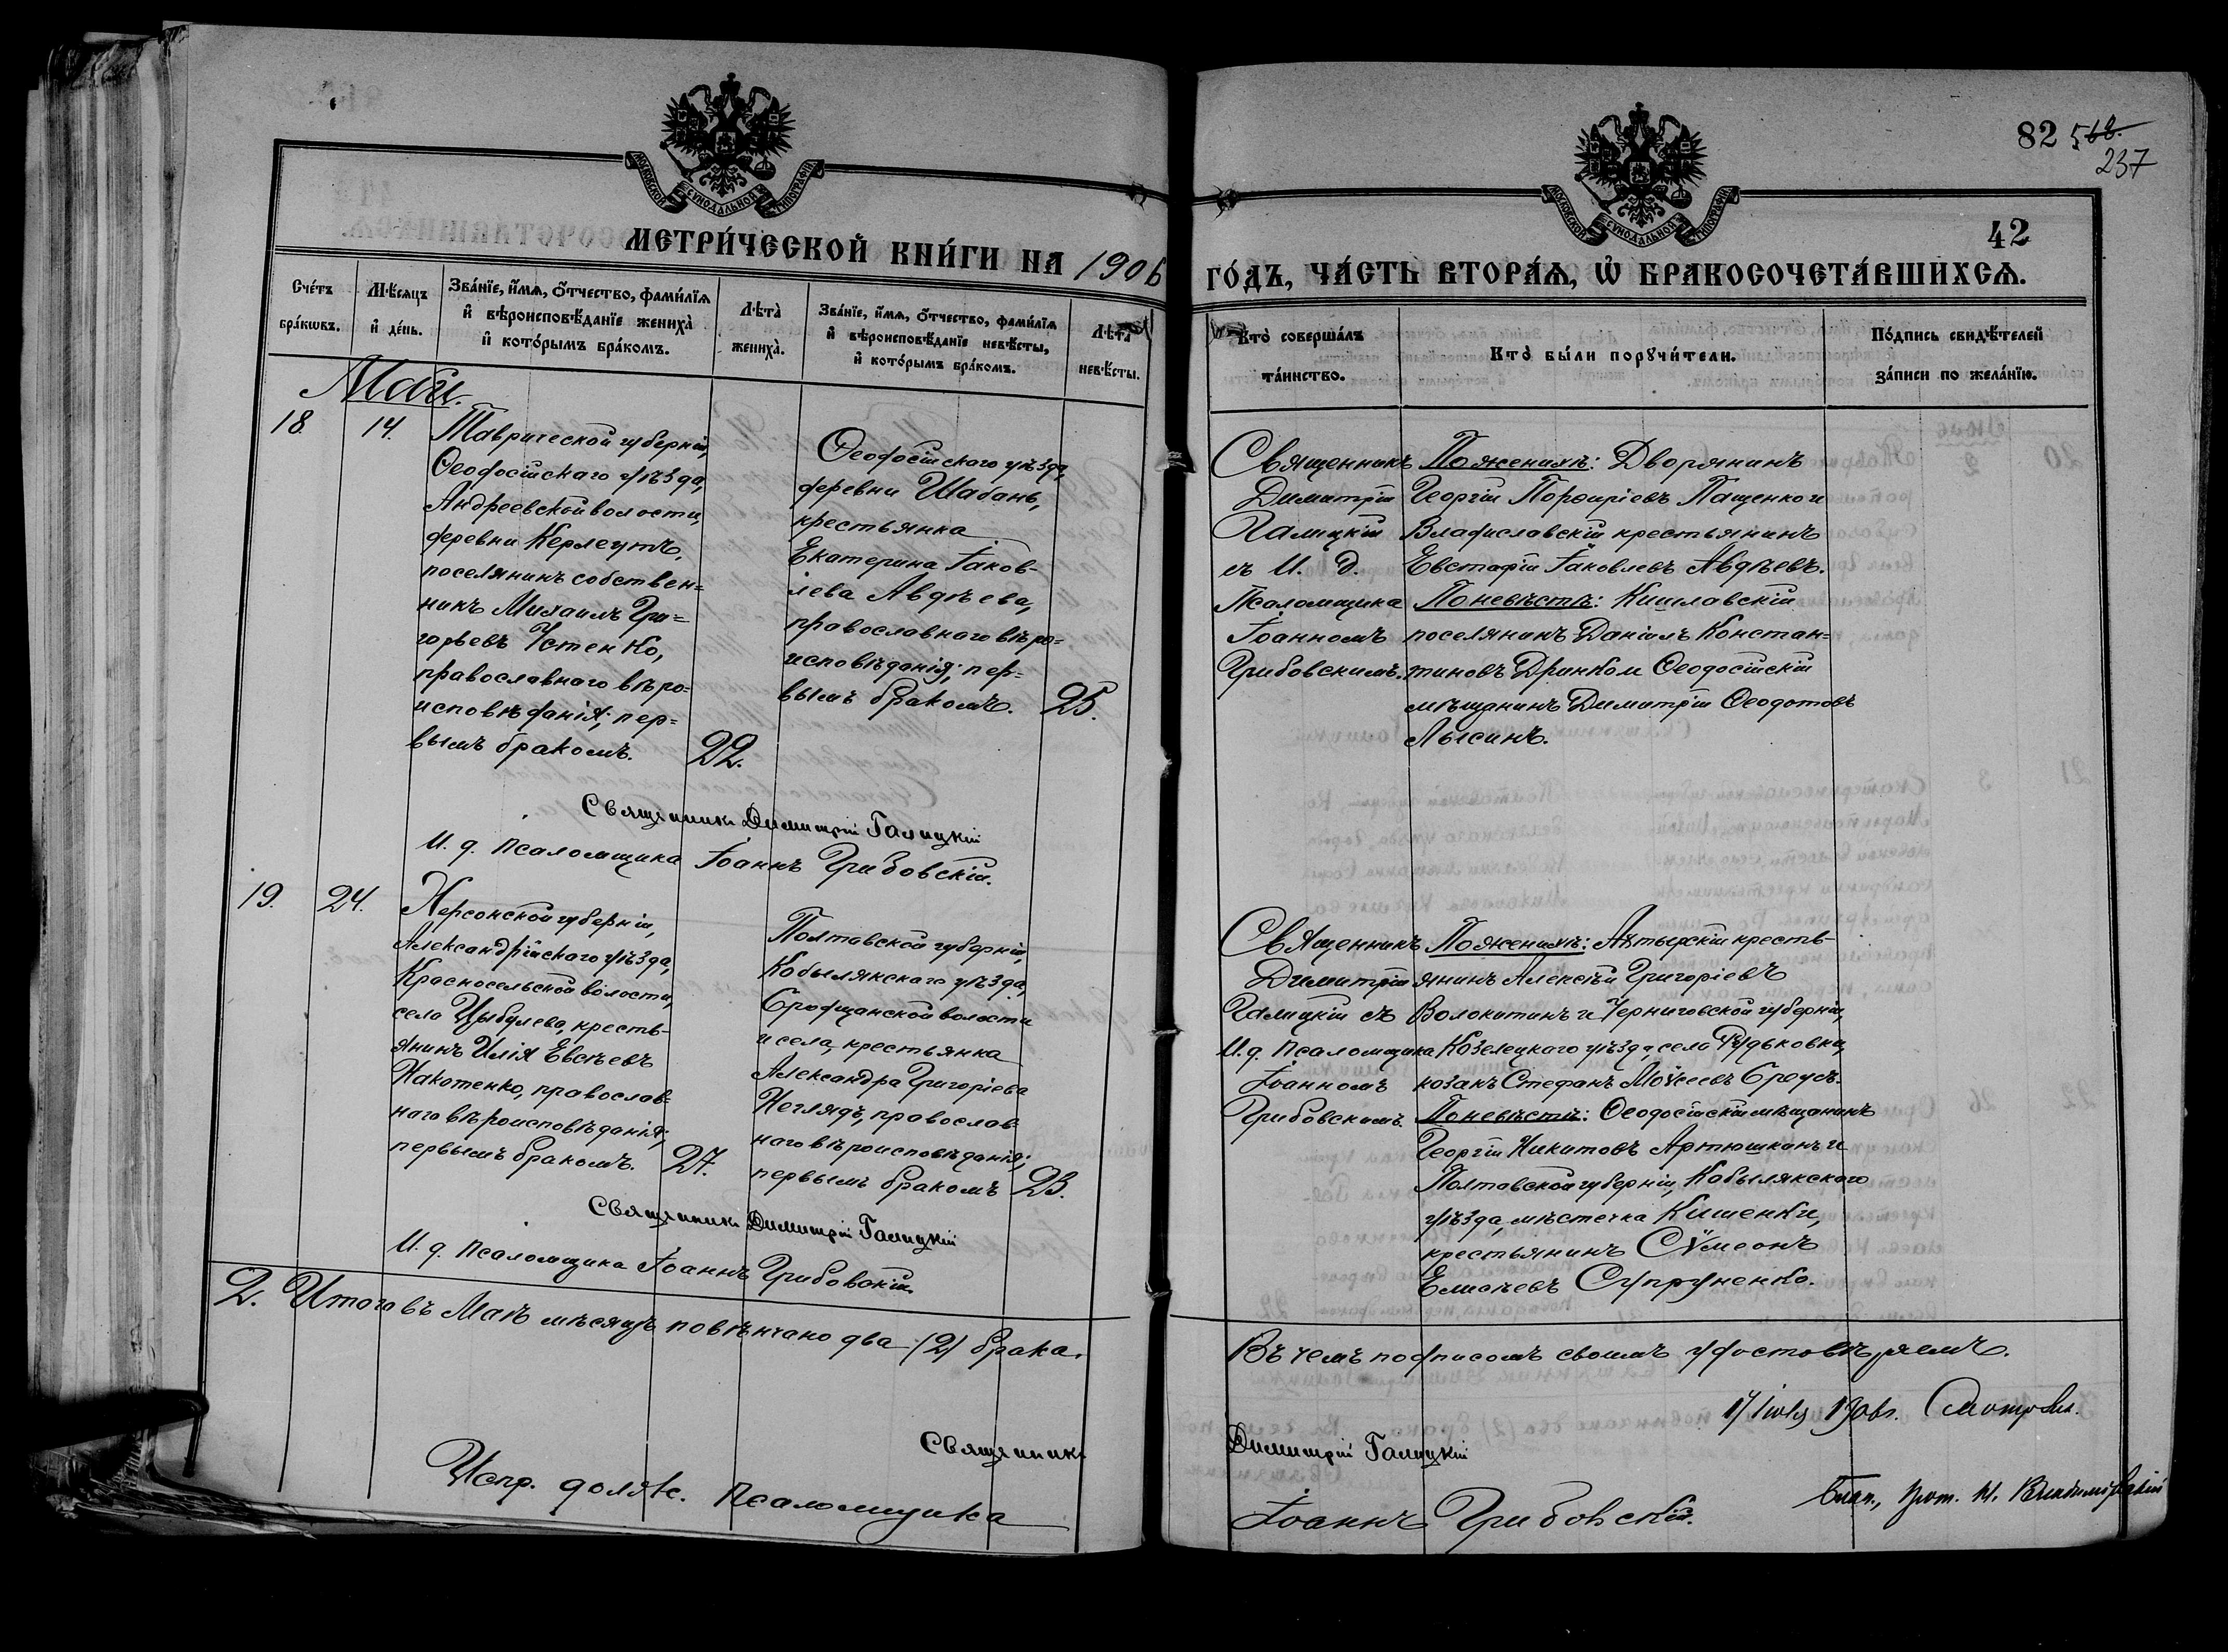 82 568.
237
42
МОСКОВСКОЙ СѴНОДАЛЬНОЙ ТИПОГРАФІИ
МОСКОВСКОЙ СѴНОДАЛЬНОЙ ТИПОГРАФІИ
МЕТРИ́ЧЕСКОЙ КНИ́ГИ НА 1906
ГО́ДЪ, ЧА́СТЬ ВТОРА́Ѧ, Ѡ҆ БРАКОСОЧЕТА́ВШИХСѦ.
Сче́тъ
бра́кѡвъ.
Мѣ́сяцъ
и҆ де́нь.
Зва́нїе, и҆́мѧ, ѻ҆́тчество, фами́лїѧ
и҆ вѣроисповѣ́данїе жениха̀
и҆ кото́рымъ бра́комъ.
Лѣта̀
жениха̀.
Зва́нїе, и҆́мѧ, ѻ҆́тчество, фами́лїѧ
и҆ вѣроисповѣ́данїе невѣ́сты,
и҆ кото́рымъ бра́комъ.
Лѣта̀
невѣ́сты.
Кто̀ соверша́лъ
та́инство.
Кто̀ бы́ли порꙋчи́тели.
По́дпись свидѣ́телей
за́писи по жела́нїю.
Май.
18.
14.
Таврической губерніи,
Ѳеодосійскаго уѣзда,
Андреевской волости,
деревни Керлеутъ,
поселянинъ собствен=
никъ Михаилъ Гри=
горьевъ Устенко,
православнаго вѣро=
исповѣданія; пер=
вымъ бракомъ.
22.
Ѳеодосійскаго уѣзда,
деревни Шабань,
крестьянка
Екатерина Іаков=
лева Авдѣева,
православнаго вѣро=
исповѣданія; пер=
вымъ бракомъ.
25.
Священникъ
Димитрій
Галицкій
съ И. д.
Псаломщика
Іоанномъ
Грибовскимъ.
По женихѣ: Дворянинъ
Георгій Порфиріевъ Пащенко и
Владиславскій крестьянинъ
Евстафій Іаковлевъ Авдѣевъ.
По невѣстѣ: Кишлавскій
поселянинъ Даніилъ Констан=
тиновъ Дринком Ѳеодосійскій
мѣщанинъ Димитрій Ѳеодотовъ
Лысинъ.
Священникъ Димитрій Галицкій
И. д. Псаломщика Іоаннъ Грибовскій.
19.
24.
Херсонской губерніи,
Александрійскаго уѣзда,
Красносельской волости,
села Цыбулева, кресть-
янинъ Илія Евсѣевъ
Накотенко, православ=
наго вѣроисповѣданія;
первымъ бракомъ.
27.
Полтавской губерніи,
Кобылякскаго уѣзда,
волости
и села, крестьянка
Александра Григоріева
Неглядъ, православ
наго вѣроисповѣданія;
первымъ бракомъ
23.
Священникъ
Димитрій
Галицкій съ
И. д. Псаломщика
Іоанномъ
Грибовскимъ.
По женихѣ: Ахтырскій кресть-
янинъ Алексѣй Григоріевъ
Волокитинъ и Черниговской губерніи,
Козелецкаго уѣзда, села Рудьковки,
козакъ Стефанъ Моѵсеевъ
По невѣстѣ: Ѳеодосійскій мѣщанинъ
Георгій Никитовъ Артюшкинъ и
Полтавской губерніи, Кобылякскаго
уѣзда, мѣстечка Кишенки,
крестьянинъ Сѵмеонъ
Елисѣевъ Супруненко.
Священникъ Димитрій Галицкій
И. д. Псаломщика Іоаннъ Грибовскій.
2. Итого въ Маѣ мѣсяцѣ повѣнчано два (2) брака.
Въ чемъ подписомъ своимъ удостовѣряемъ.
Священникъ
Димитрій Галицкій
Испр. должн. Псаломщика
Іоаннъ Грибовскій.
17 Іюля 1906 г. Смотрѣлъ.
Благ., Прот. Владимірскій